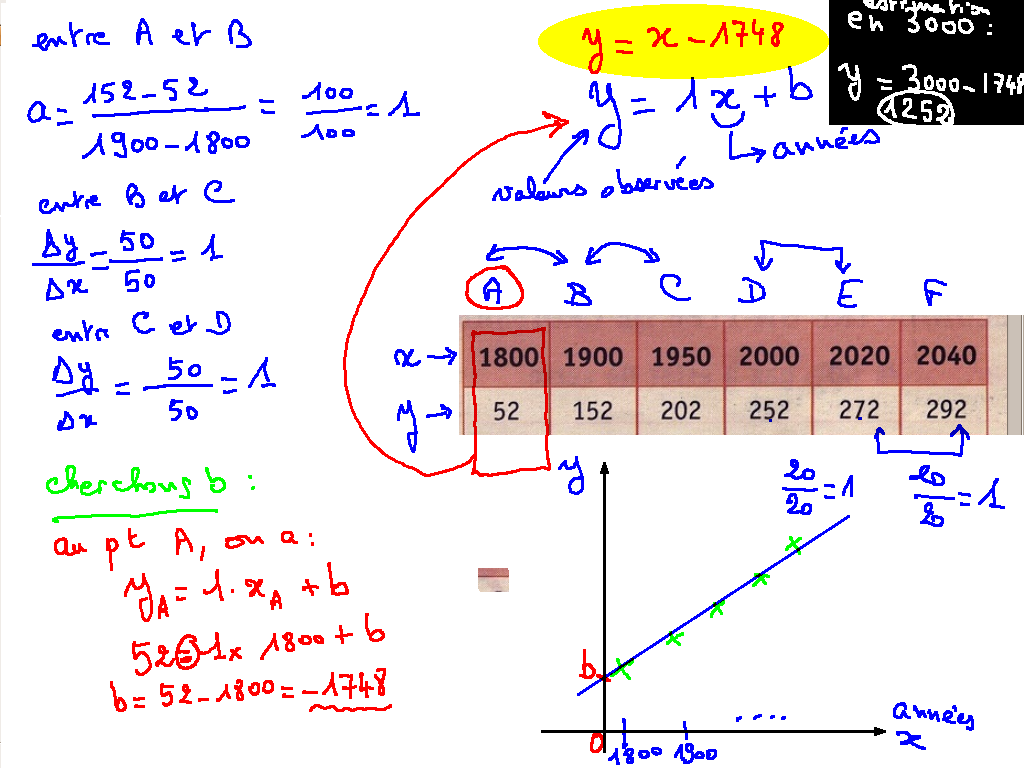 entre A et B
a = 152-52 / 1900-1800 = 100 / 100 = 1
entre B et C
Δy / Δx = 50 / 50 = 1
entre C et D
Δy / Δx = 50 / 50 = 1
cherchons b :
au pt A, on a :
y_A = 1 · x_A + b
52 = 1 × 1800 + b
b = 52 - 1800 = -1748
y = x - 1748
y = 1x + b
années
valeurs observées
estimation
en 3000 :
y = 3000 - 1748
1252
A B C D E F
x → 1800 1900 1950 2000 2020 2040
y → 52 152 202 252 272 292
20 / 20 = 1
20 / 20 = 1
y
b
0 1800 1900 ....
années
x